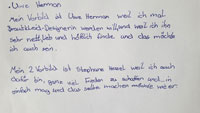 . Uwe Herman
Mein Vorbild ist Uwe Herman weil ich mal
Brautkleid-Designerin werden will, und weil ich ihn
sehr nett, lieb und höfflich finde. und das möchte
ich auch sein.
Mein 2 Vorbild ist Stephane Hessel weil ich auch
dafür bin, ganz viel Frieden zu schaffen und in
einfach mag und das selbe machen möchte wie er.